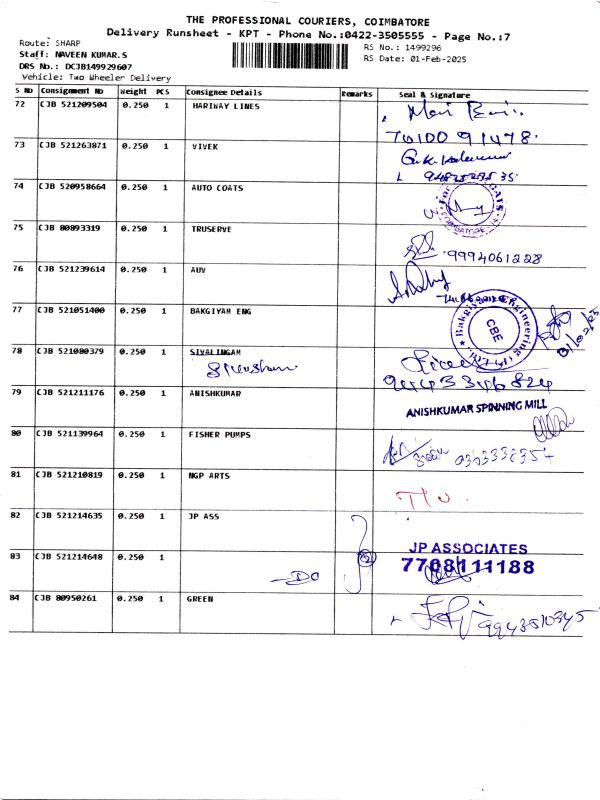 THE PROFESSIONAL COURIERS, COIMBATORE
Delivery Runsheet - KPT - Phone No.:0422-3505555 - Page No.:7
Route: SHARP
RS No.: 1499296
Staff: NAVEEN KUMAR.S
RS Date: 01-Feb-2025
DRS No.: DCJB149929607
Vehicle: Two Wheeler Delivery
S No Consignment No Weight PCS Consignee Details Remarks Seal & Signature
72 CJB 521209504 0.250 1 HARIWAY LINES
73 CJB 521263871 0.250 1 VIVEK
74 CJB 520958664 0.250 1 AUTO COATS
COIMBATORE
75 CJB 80893319 0.250 1 TRUSERVE
9994061228
76 CJB 521239614 0.250 1 AUV
77 CJB 521051400 0.250 1 BAKGIYAM ENG
Bakgiyam Engineering (P) Ltd.
CBE
01/02/25
78 CJB 521080379 0.250 1 SIVALINGAM
79 CJB 521211176 0.250 1 ANISHKUMAR
ANISHKUMAR SPINNING MILL
80 CJB 521139964 0.250 1 FISHER PUMPS
81 CJB 521210819 0.250 1 NGP ARTS
82 CJB 521214635 0.250 1 JP ASS
JP ASSOCIATES
7708111188
83 CJB 521214648 0.250 1
-DO
84 CJB 80950261 0.250 1 GREEN
9943510345